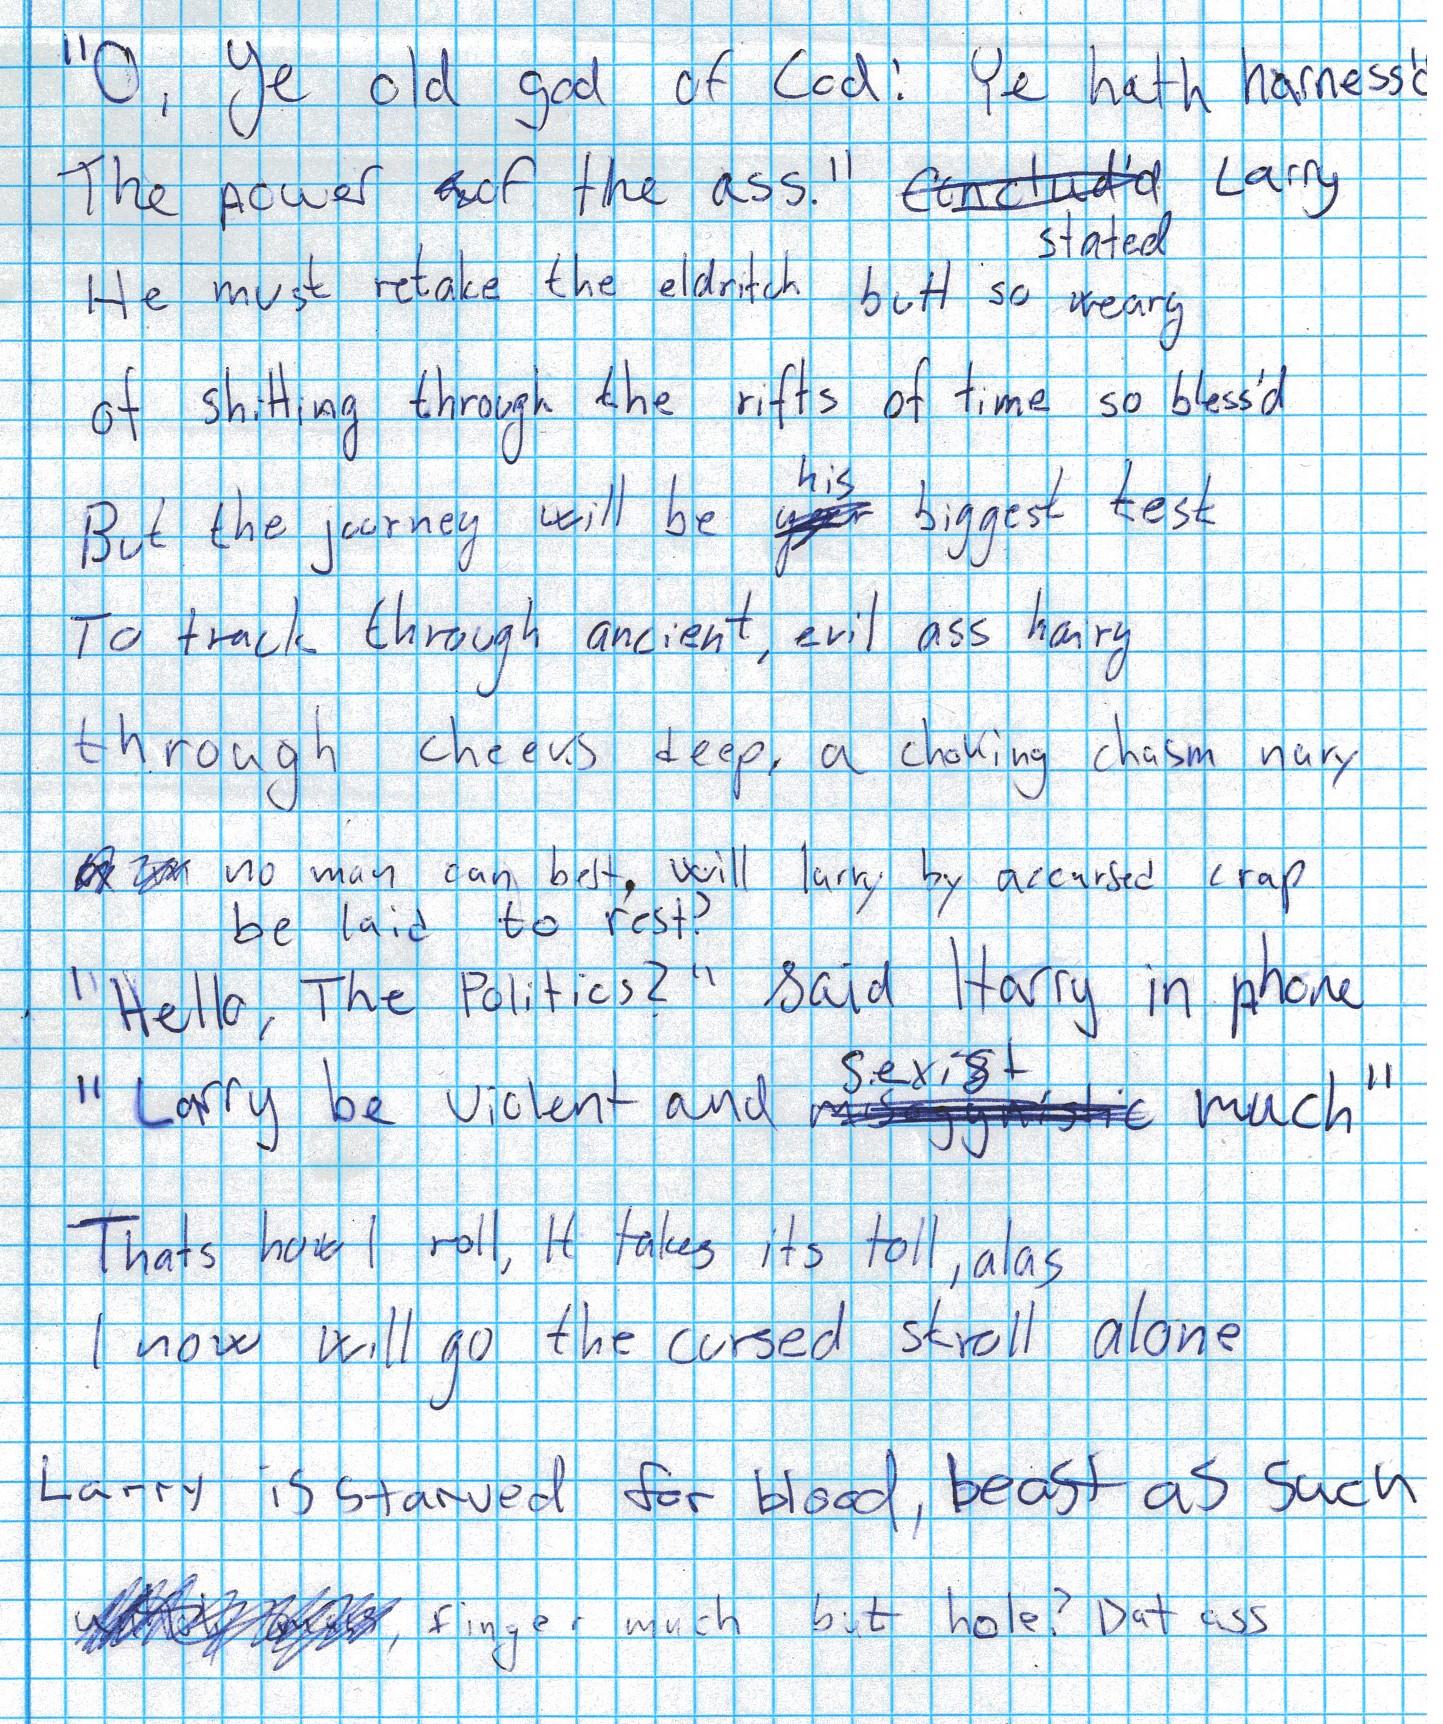 "O, Ye old god of Cod: Ye hath harness'd
The power of the ass." Larry
stated
He must retake the eldritch butt so weary
of shitting through the rifts of time so bless'd
But the journey will be his biggest test
To track through ancient, evil ass hairy
through cheeks deep, a choking chasm nary
no man can best, will larry by accursed crap
be laid to rest?
"Hello, The Politics?" Said Harry in phone
"Larry be violent and sexist much"
Thats how I roll, It takes its toll, alas
I now will go the cursed stroll alone
Larry is starved for blood, beast as such
, finger much but hole? Dat ass